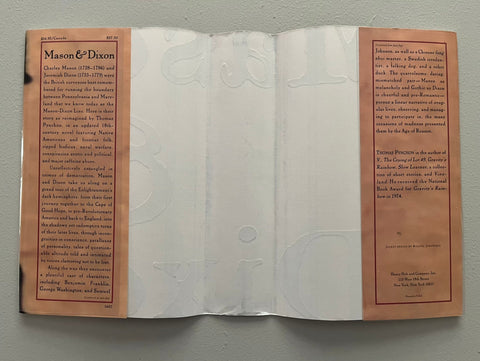 $27.50
Mason & Dixon
Charles Mason (1728–1786) and
Jeremiah Dixon (1733–1779) were
the British surveyors best remem-
bered for running the boundary
between Pennsylvania and Mary-
land that we know today as the
Mason-Dixon Line. Here is their
story as reimagined by Thomas
Pynchon, in an updated 18th-
century novel featuring Native
Americans and frontier folk,
ripped bodices, naval warfare,
conspiracies erotic and political,
and major caffeine abuse.
Unreflectively entangled in
crimes of demarcation, Mason
and Dixon take us along on a
grand tour of the Enlightenment's
dark hemisphere, from their first
journey together to the Cape of
Good Hope, to pre-Revolutionary
America and back to England, into
the shadows yet redemptive turns
of their later lives, through incon-
gruities in conscience, parallaxes
of personality, tales of question-
able altitude told and intimated
by voices clamoring not to be lost.
Along the way they encounter
a plentiful cast of characters,
including Benjamin Franklin,
George Washington, and Samuel
Johnson, as well as a Chinese feng
shui master, a Swedish irredent-
ist, a talking dog, and a robot
duck. The quarrelsome, daring,
mismatched pair—Mason as
melancholy and Gothic as Dixon
is cheerful and pre-Romantic—
pursue a linear narrative of irreg-
ular lives, observing, and manag-
ing to participate in, the many
occasions of madness presented
them by the Age of Reason.
THOMAS PYNCHON is the author of
V., The Crying of Lot 49, Gravity's
Rainbow, Slow Learner, a collec-
tion of short stories, and Vine-
land. He received the National
Book Award for Gravity's Rain-
bow in 1974.
Henry Holt and Company, Inc.
115 West 18th Street
New York, New York 10011